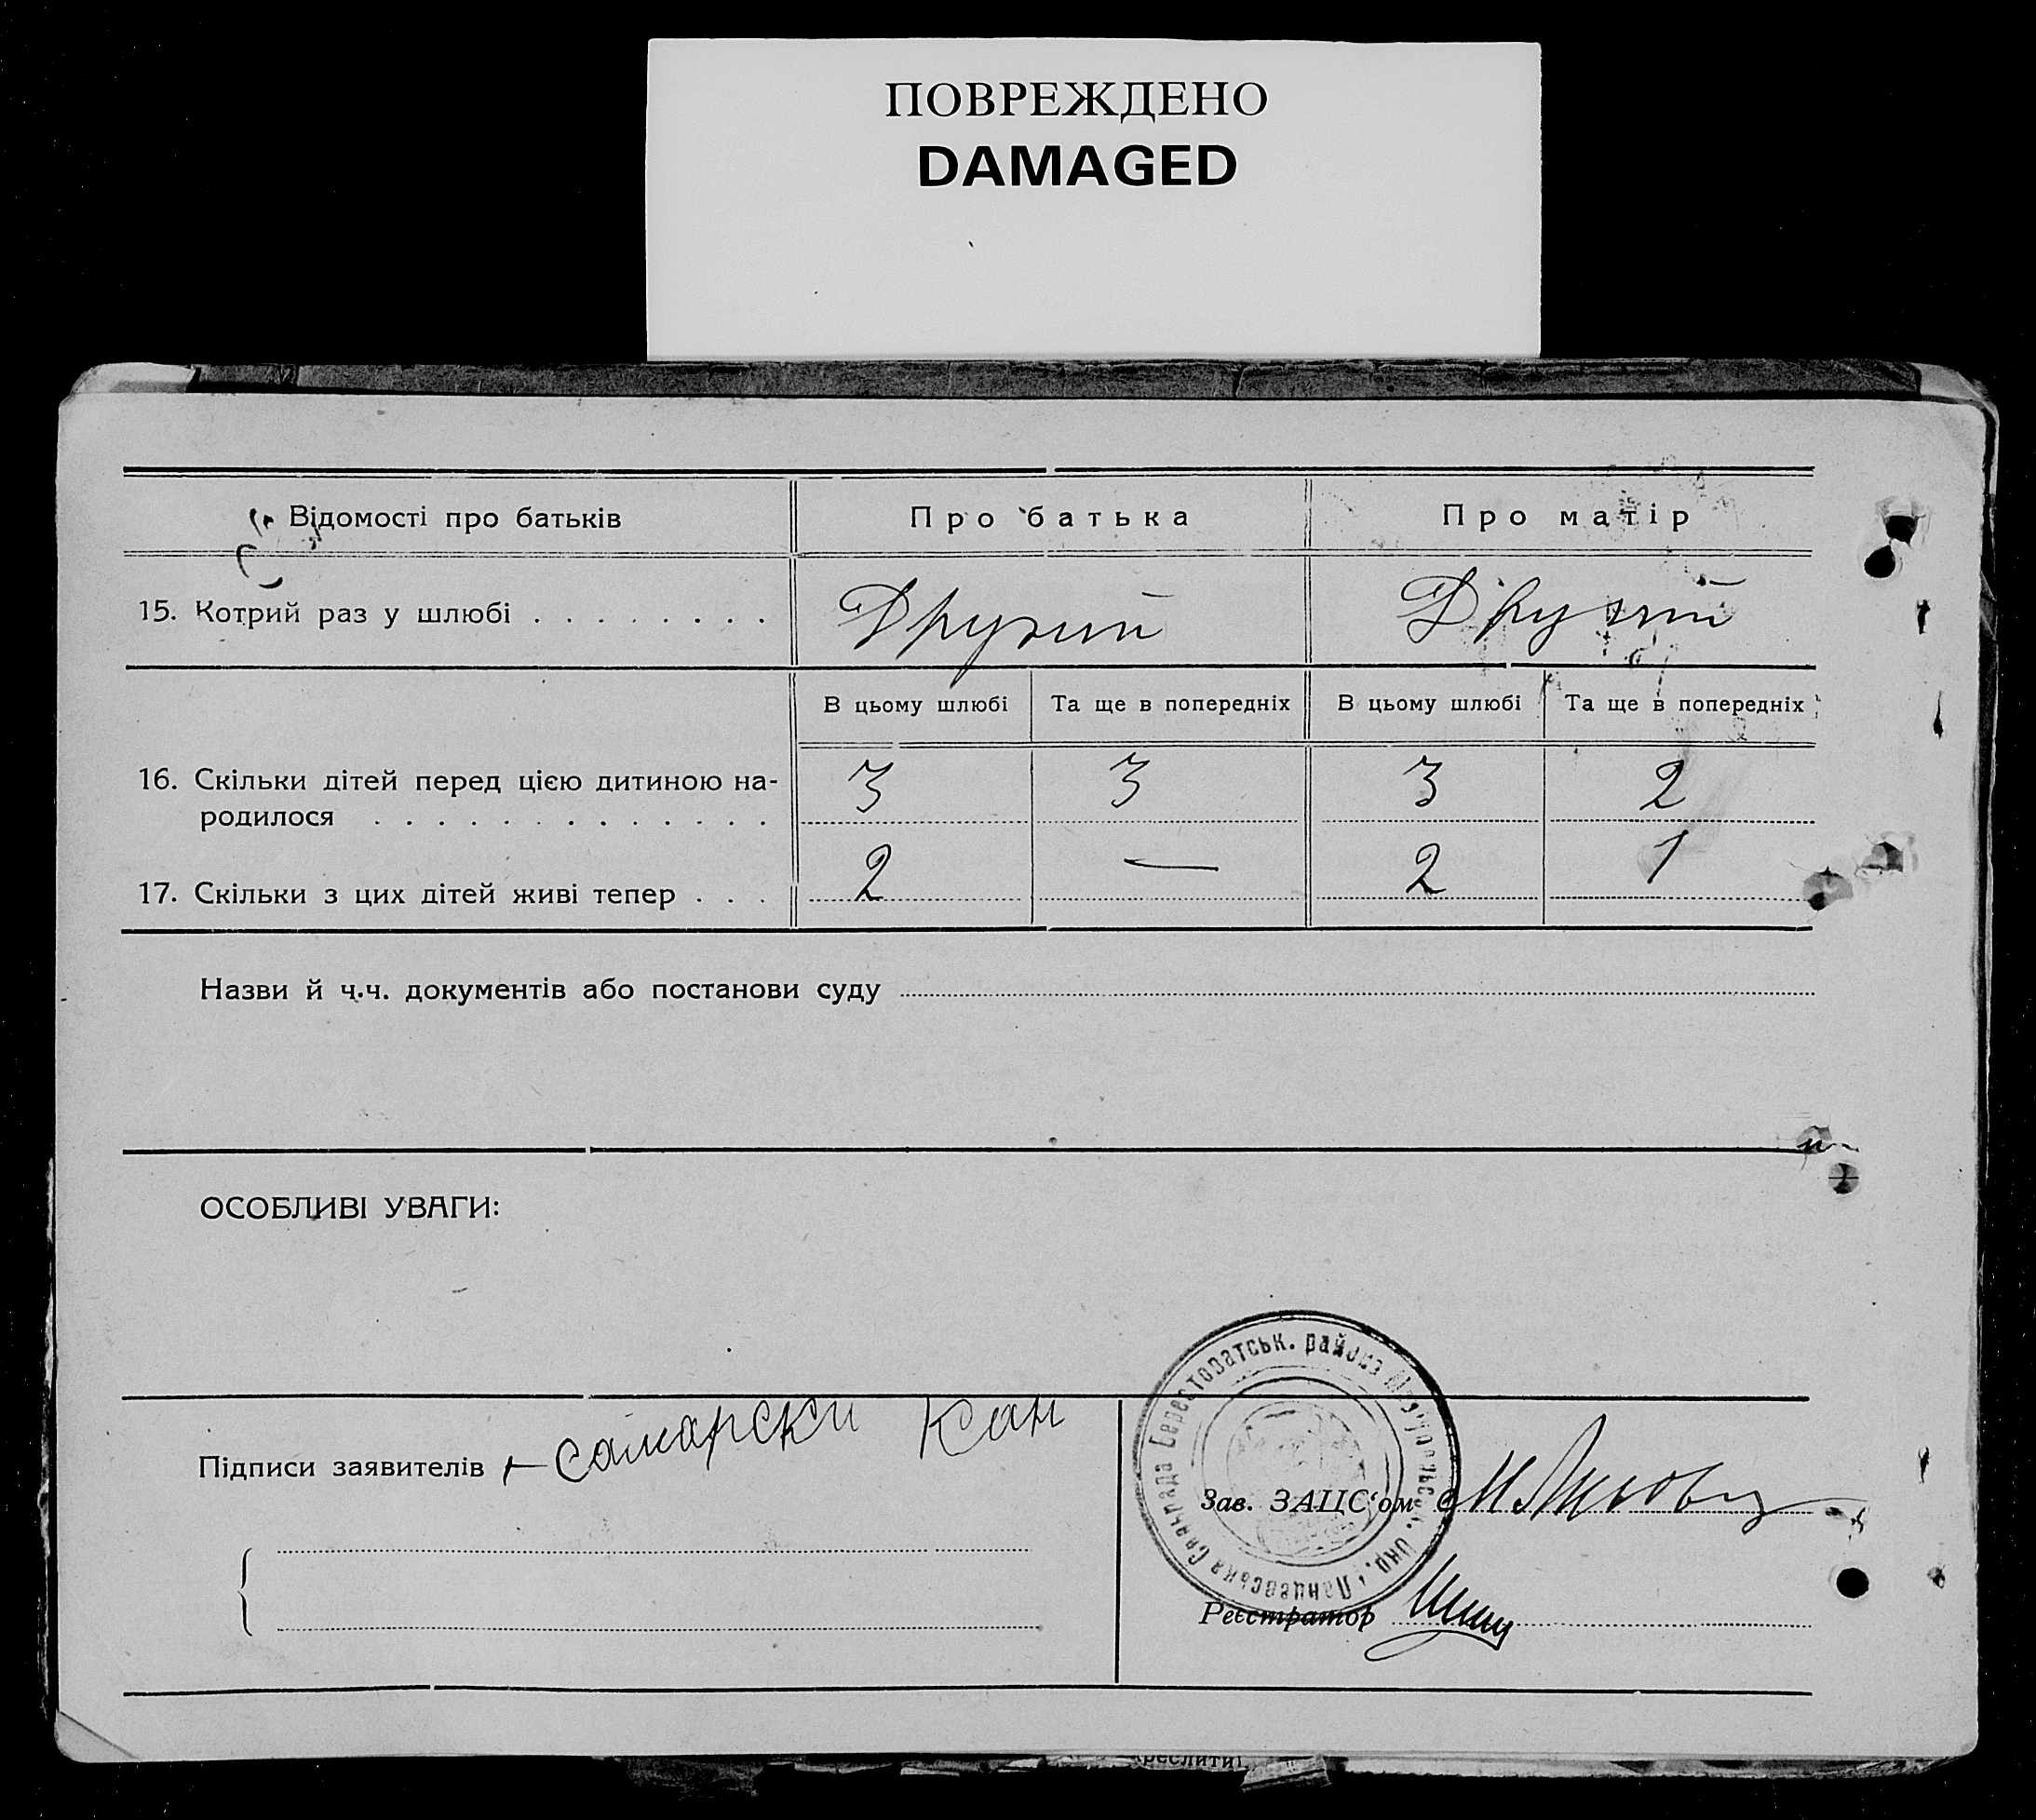 ПОВРЕЖДЕНО
DAMAGED
Відомості про батьків
Про батька
Про матір
15. Котрий раз у шлюбі . . . . . . . .
Другий
Другий
В цьому шлюбі
Та ще в попередніх
В цьому шлюбі
Та ще в попередніх
16. Скільки дітей перед цією дитиною на-
родилося . . . . . . . . . . . . .
3
3
3
2
17. Скільки з цих дітей живі тепер . . .
2
—
2
1
Назви й ч.ч. документів або постанови суду
ОСОБЛИВІ УВАГИ:
Підписи заявителів
самарски Кан
Зав. ЗАЦС'ом
Реєстратор
района
Сельрада
Окр.
реслити)